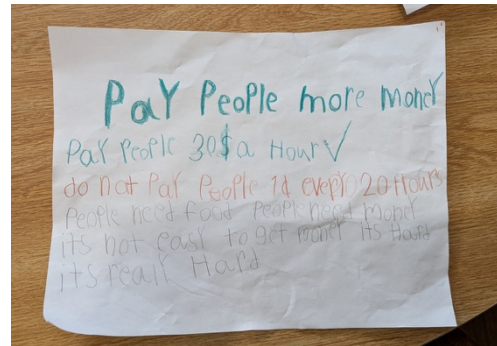 PaY PeoPle more moneY
PaY PeoPle 30$ a HourV
do not PaY PeoPle 1d every 20 Hours
PeoPle need food PeoPle need money
its not easy to get money its Hard
its reall Hard